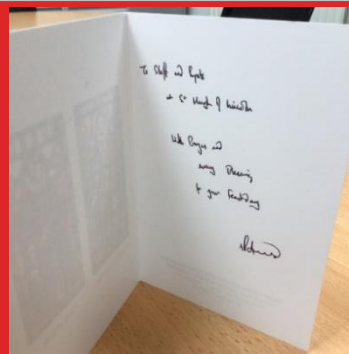 To Staff and Pupils
at St Hugh of Lincoln
With Prayers and
every Blessing
for your Feastday